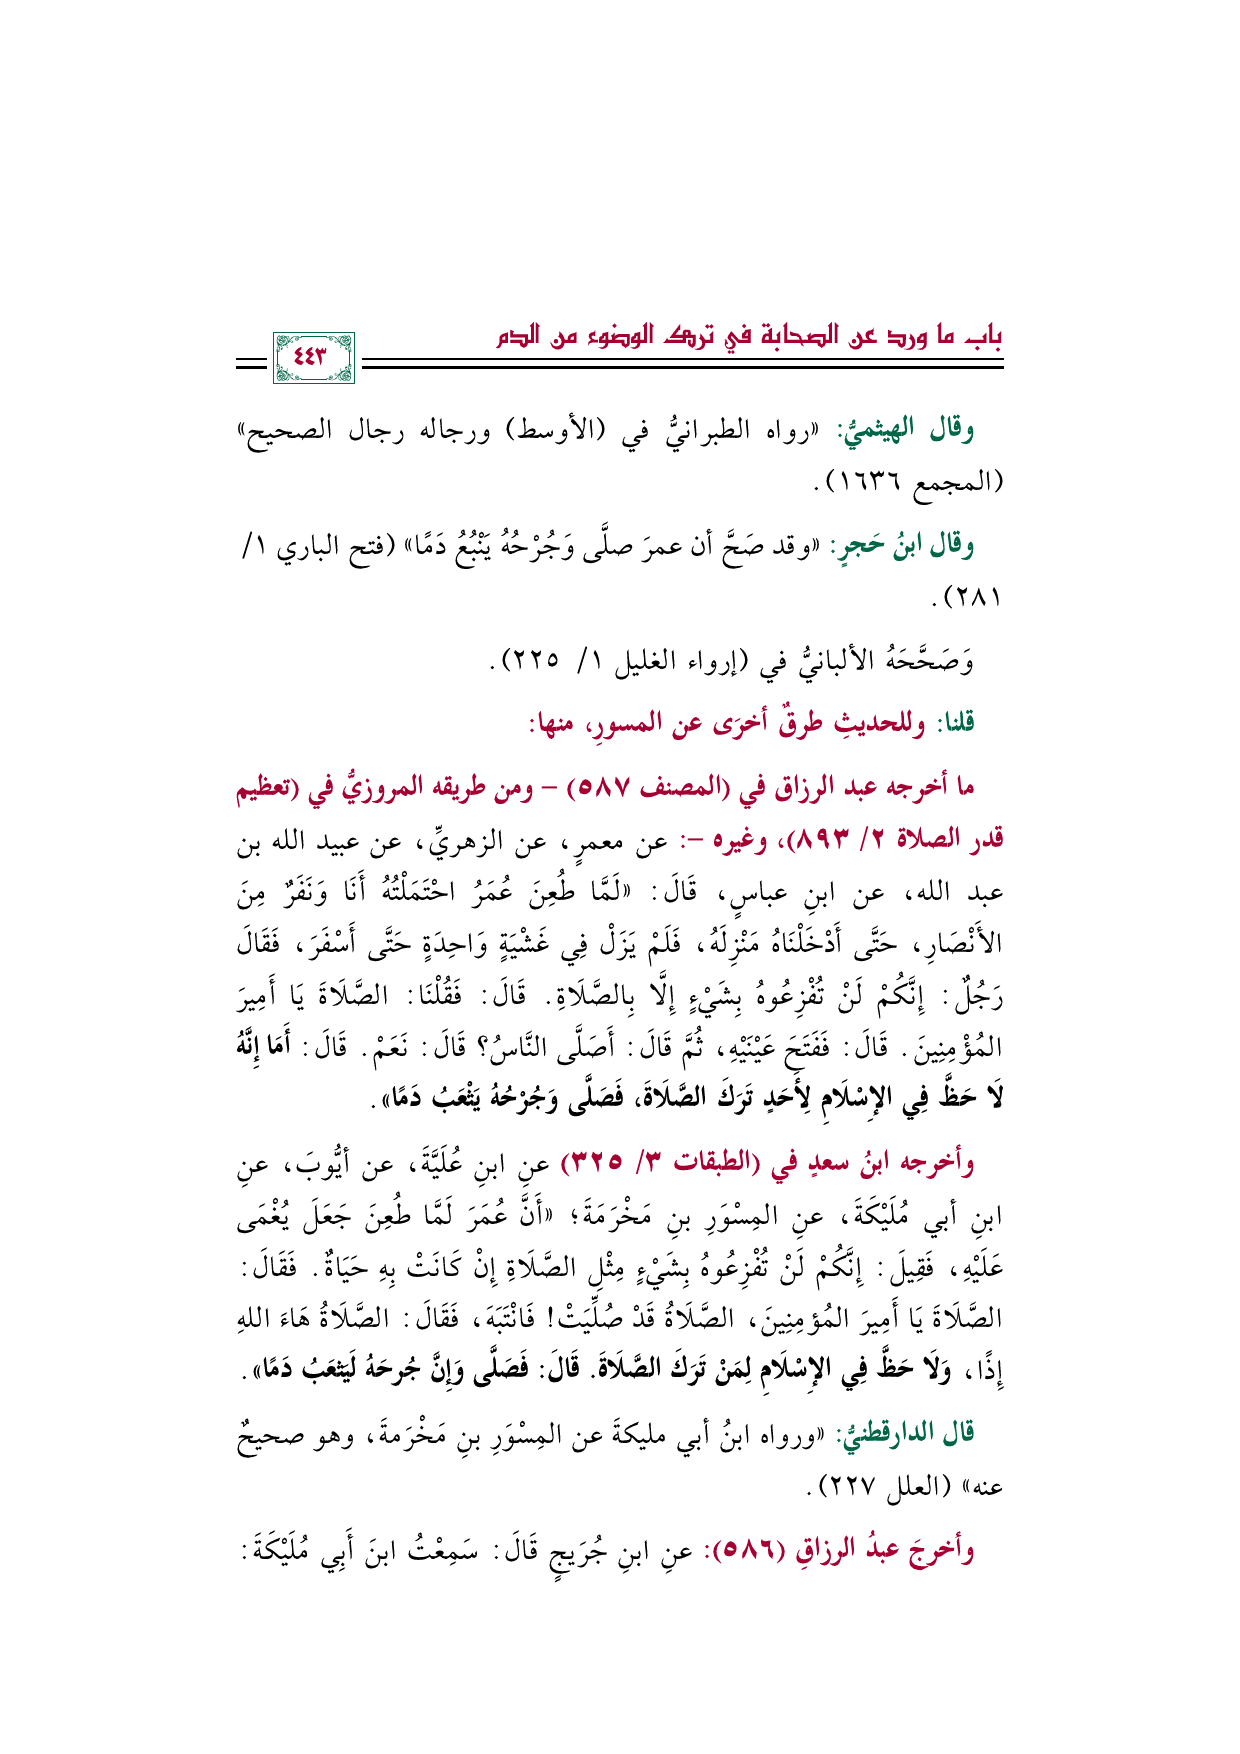 باب ما ورد عن الصحابة في ترك الوضوء من الدم
٤٤٣
وقال الهيثميُّ: «رواه الطبرانيُّ في (الأوسط) ورجاله رجال الصحيح»
(المجمع ١٦٣٦).
وقال ابنُ حَجرٍ: «وقد صَحَّ أن عمرَ صلَّى وَجُرْحُهُ يَنْبُعُ دَمًا» (فتح الباري ١/
٢٨١).
وَصَحَّحَهُ الألبانيُّ في (إرواء الغليل ١/ ٢٢٥).
قلنا: وللحديثِ طرقٌ أخرَى عن المسورِ، منها:
ما أخرجه عبد الرزاق في (المصنف ٥٨٧) – ومن طريقه المروزيُّ في (تعظيم
قدر الصلاة ٢/ ٨٩٣)، وغيره –: عن معمرٍ، عن الزهريِّ، عن عبيد الله بن
عبد الله، عن ابنِ عباسٍ، قَالَ: «لَمَّا طُعِنَ عُمَرُ احْتَمَلْتُهُ أَنَا وَنَفَرٌ مِنَ
الأَنْصَارِ، حَتَّى أَدْخَلْنَاهُ مَنْزِلَهُ، فَلَمْ يَزَلْ فِي غَشْيَةٍ وَاحِدَةٍ حَتَّى أَسْفَرَ، فَقَالَ
رَجُلٌ: إِنَّكُمْ لَنْ تُفْزِعُوهُ بِشَيْءٍ إِلَّا بِالصَّلَاةِ. قَالَ: فَقُلْنَا: الصَّلَاةَ يَا أَمِيرَ
المُؤْمِنِينَ. قَالَ: فَفَتَحَ عَيْنَيْهِ، ثُمَّ قَالَ: أَصَلَّى النَّاسُ؟ قَالَ: نَعَمْ. قَالَ: أَمَا إِنَّهُ
لَا حَظَّ فِي الإِسْلَامِ لِأَحَدٍ تَرَكَ الصَّلَاةَ، فَصَلَّى وَجُرْحُهُ يَثْعَبُ دَمًا».
وأخرجه ابنُ سعدٍ في (الطبقات ٣/ ٣٢٥) عنِ ابنِ عُلَيَّةَ، عن أيُّوبَ، عنِ
ابنِ أبي مُلَيْكَةَ، عنِ المِسْوَرِ بنِ مَخْرَمَةَ؛ «أَنَّ عُمَرَ لَمَّا طُعِنَ جَعَلَ يُغْمَى
عَلَيْهِ، فَقِيلَ: إِنَّكُمْ لَنْ تُفْزِعُوهُ بِشَيْءٍ مِثْلِ الصَّلَاةِ إِنْ كَانَتْ بِهِ حَيَاةٌ. فَقَالَ:
الصَّلَاةَ يَا أَمِيرَ المُؤمِنِينَ، الصَّلَاةُ قَدْ صُلِّيَتْ! فَانْتَبَهَ، فَقَالَ: الصَّلَاةُ هَاءَ اللهِ
إِذًا، وَلَا حَظَّ فِي الإِسْلَامِ لِمَنْ تَرَكَ الصَّلَاةَ. قَالَ: فَصَلَّى وَإِنَّ جُرحَهُ لَيَثعَبُ دَمًا».
قال الدارقطنيُّ: «ورواه ابنُ أبي مليكةَ عن المِسْوَرِ بنِ مَخْرَمةَ، وهو صحيحٌ
عنه» (العلل ٢٢٧).
وأخرجَ عبدُ الرزاقِ (٥٨٦): عنِ ابنِ جُرَيجٍ قَالَ: سَمِعْتُ ابنَ أَبِي مُلَيْكَةَ: